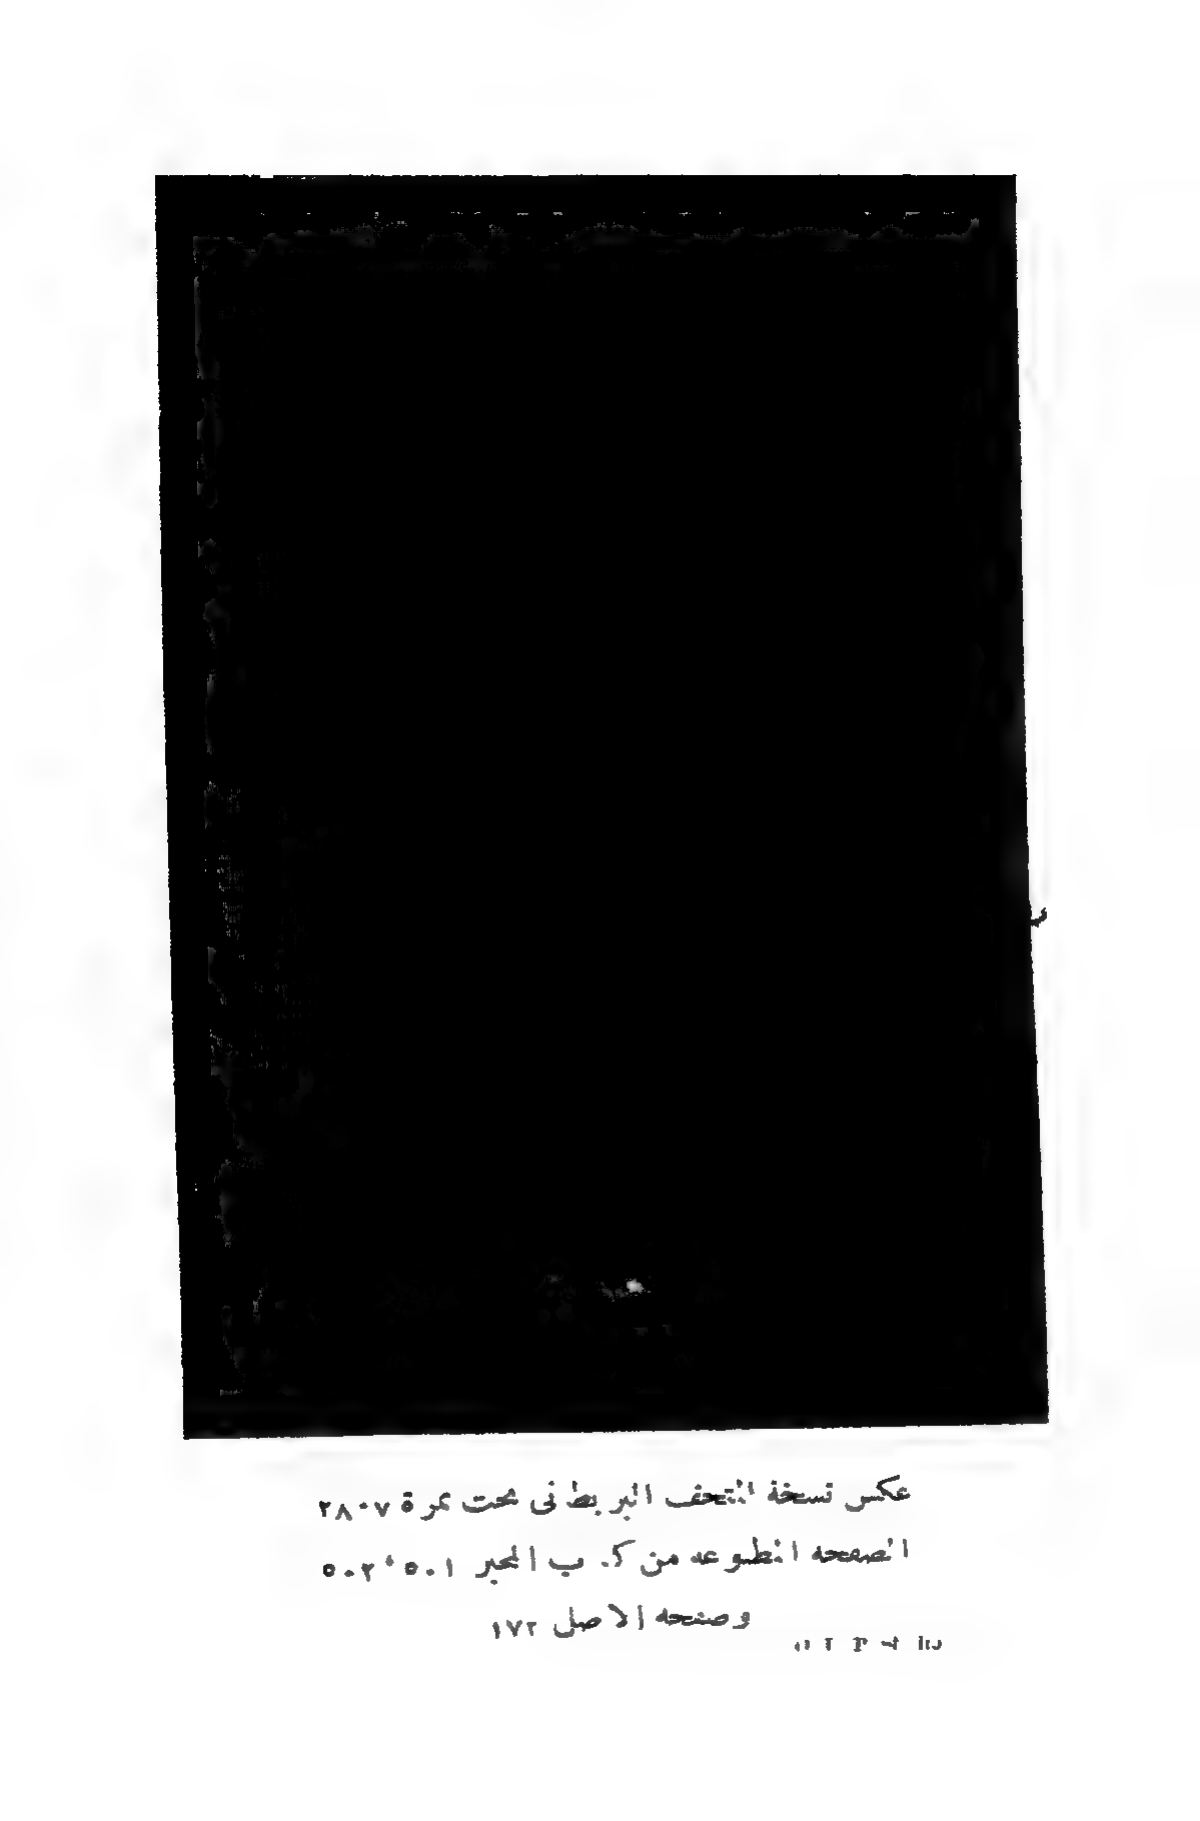 عكس نسخة المتحف البريطانى تحت نمرة ٢٨٠٧
الصفحه المطبوعه من كتاب المحبر ٥٠١، ٥٠٢
وصفحه الاصل ١٧٢